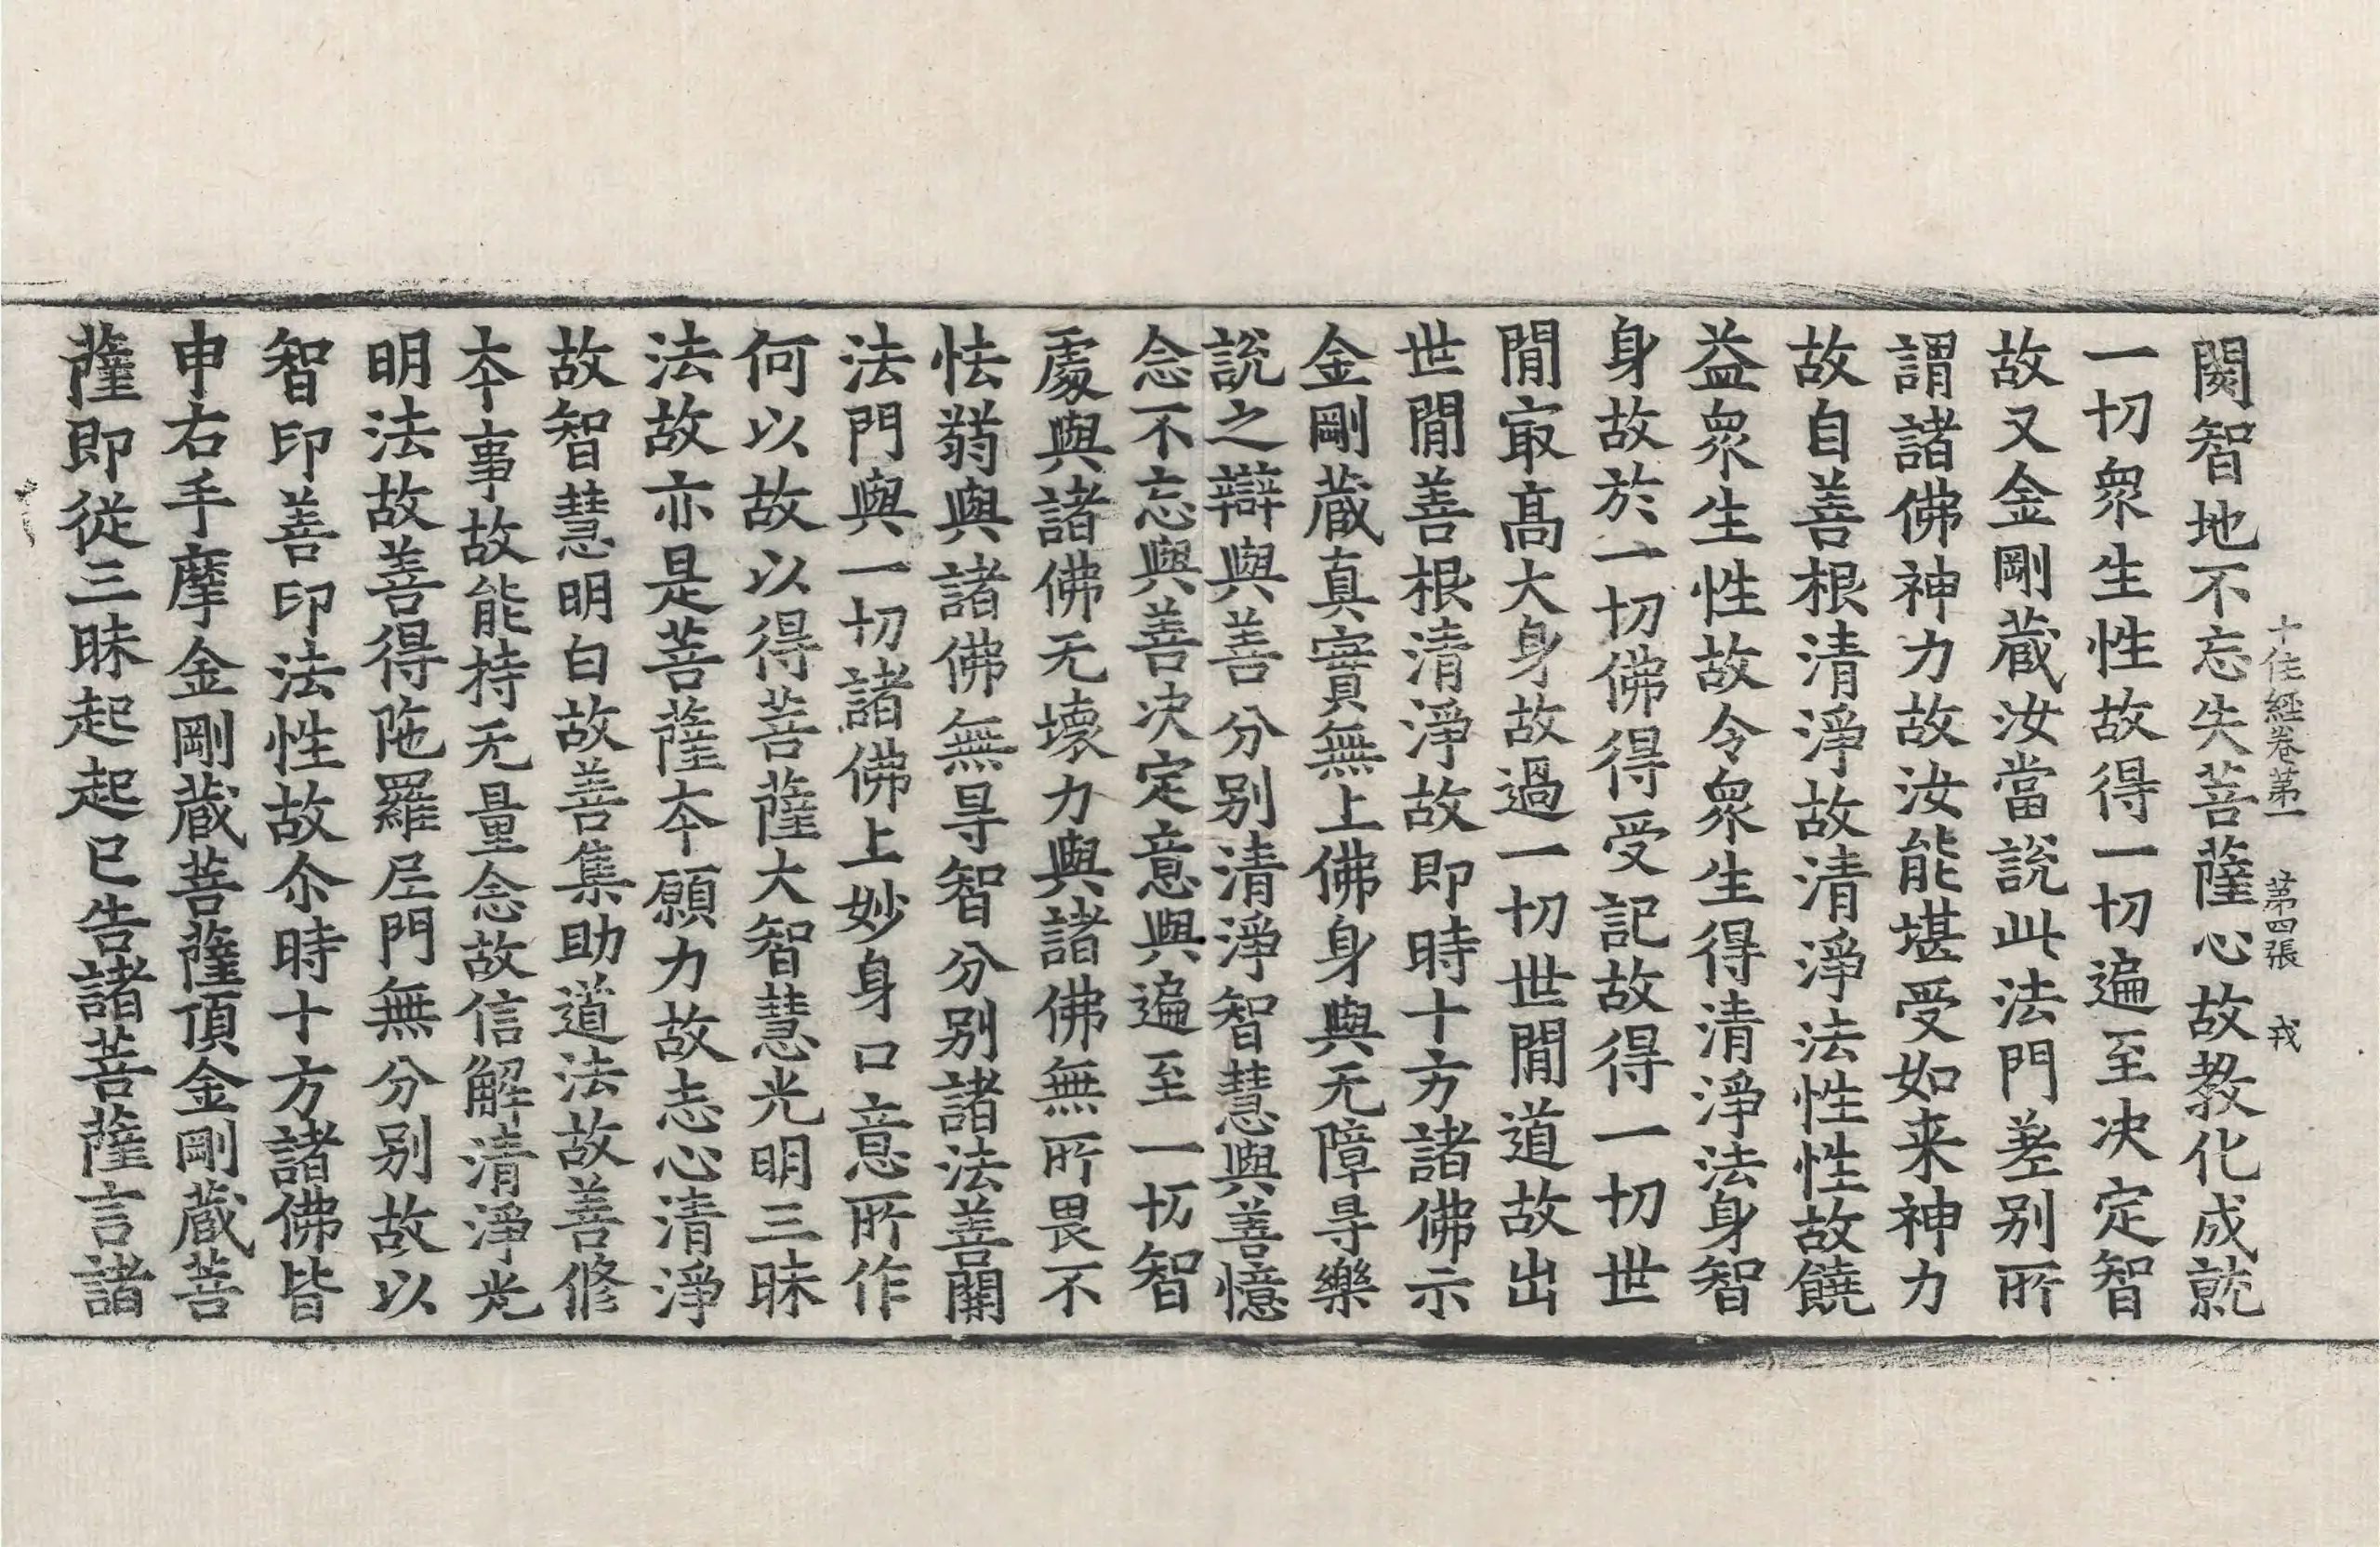 十住經卷第一　第四張　戎
閡智地不忘失菩薩心故教化成就
一切衆生性故得一切遍至决定智
故又金剛蔵汝當說此法門差别所
謂諸佛神力故汝能堪受如来神力
故自善根清淨故清淨法性性故饒
益衆生性故令衆生得清淨法身智
身故於一切佛得受記故得一切世
閒㝡髙大身故過一切世閒道故出
世閒善根清淨故即時十方諸佛示
金剛蔵真實無上佛身與无障㝵樂
說之辯與善分别清淨智慧與善憶
念不忘與善决定意與遍至一切智
處與諸佛无壊力與諸佛無所畏不
怯弱與諸佛無㝵智分别諸法善開
法門與一切諸佛上妙身口意所作
何以故以得菩薩大智慧光明三昧
法故亦是菩薩夲願力故志心清淨
故智慧明白故善集助道法故善修
夲事故能持无量念故信解清淨光
明法故善得陁羅尼門無分别故以
智印善印法性故尒時十方諸佛皆
申右手摩金剛蔵菩薩頂金剛蔵菩
薩即從三昧起起已告諸菩薩言諸